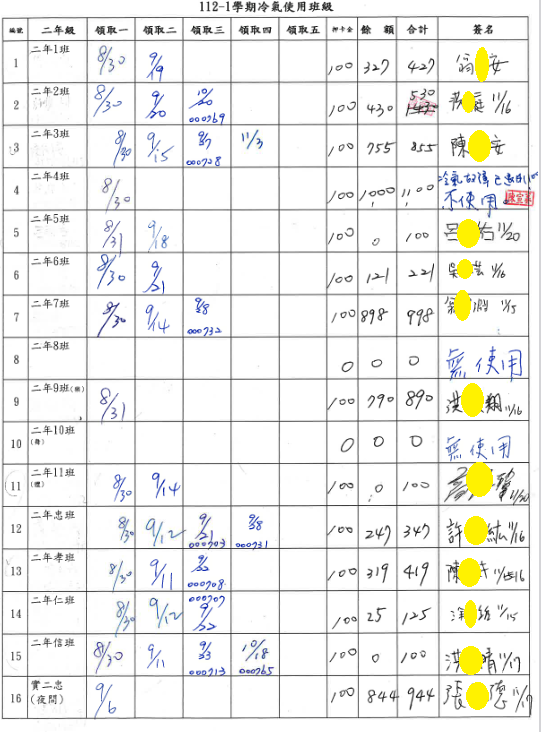 112-1學期冷氣使用班級
編號 二年級 領取一 領取二 領取三 領取四 領取五 押卡金 餘額 合計 簽名
1 二年1班 8/30 9/19 100 327 427 翁 安
2 二年2班 8/30 9/20 10/20 000769 100 430 530 1430 11/16
3 二年3班 8/30 9/15 9/27 000728 11/3 100 755 855 陳 安
4 二年4班 8/30 100 1,000 1,100 冷氣故障已 不使用。
5 二年5班 8/31 9/18 100 0 100 呂 右 11/20
6 二年6班 8/30 9/21 100 121 221 吳 11/16
7 二年7班 8/30 9/14 9/28 000732 100 898 998 翁 11/15
8 二年8班 0 0 0 無使用
9 二年9班 8/31 100 790 890 洪 翔 11/16
10 二年10班 0 0 0 無使用
11 二年11班 8/30 9/14 100 0 100 11/20
12 二年忠班 8/30 9/12 9/21 000703 9/28 000731 100 247 347 許 紘 11/16
13 二年孝班 8/30 9/11 9/22 000708 100 319 419 陳
14 二年仁班 8/30 9/12 000707 9/22 100 25 125 11/15
15 二年信班 8/30 9/11 9/23 000713 10/18 000765 100 0 100 洪 晴 11/17
16 實二忠(夜間) 9/6 100 844 944 張 德 11/17